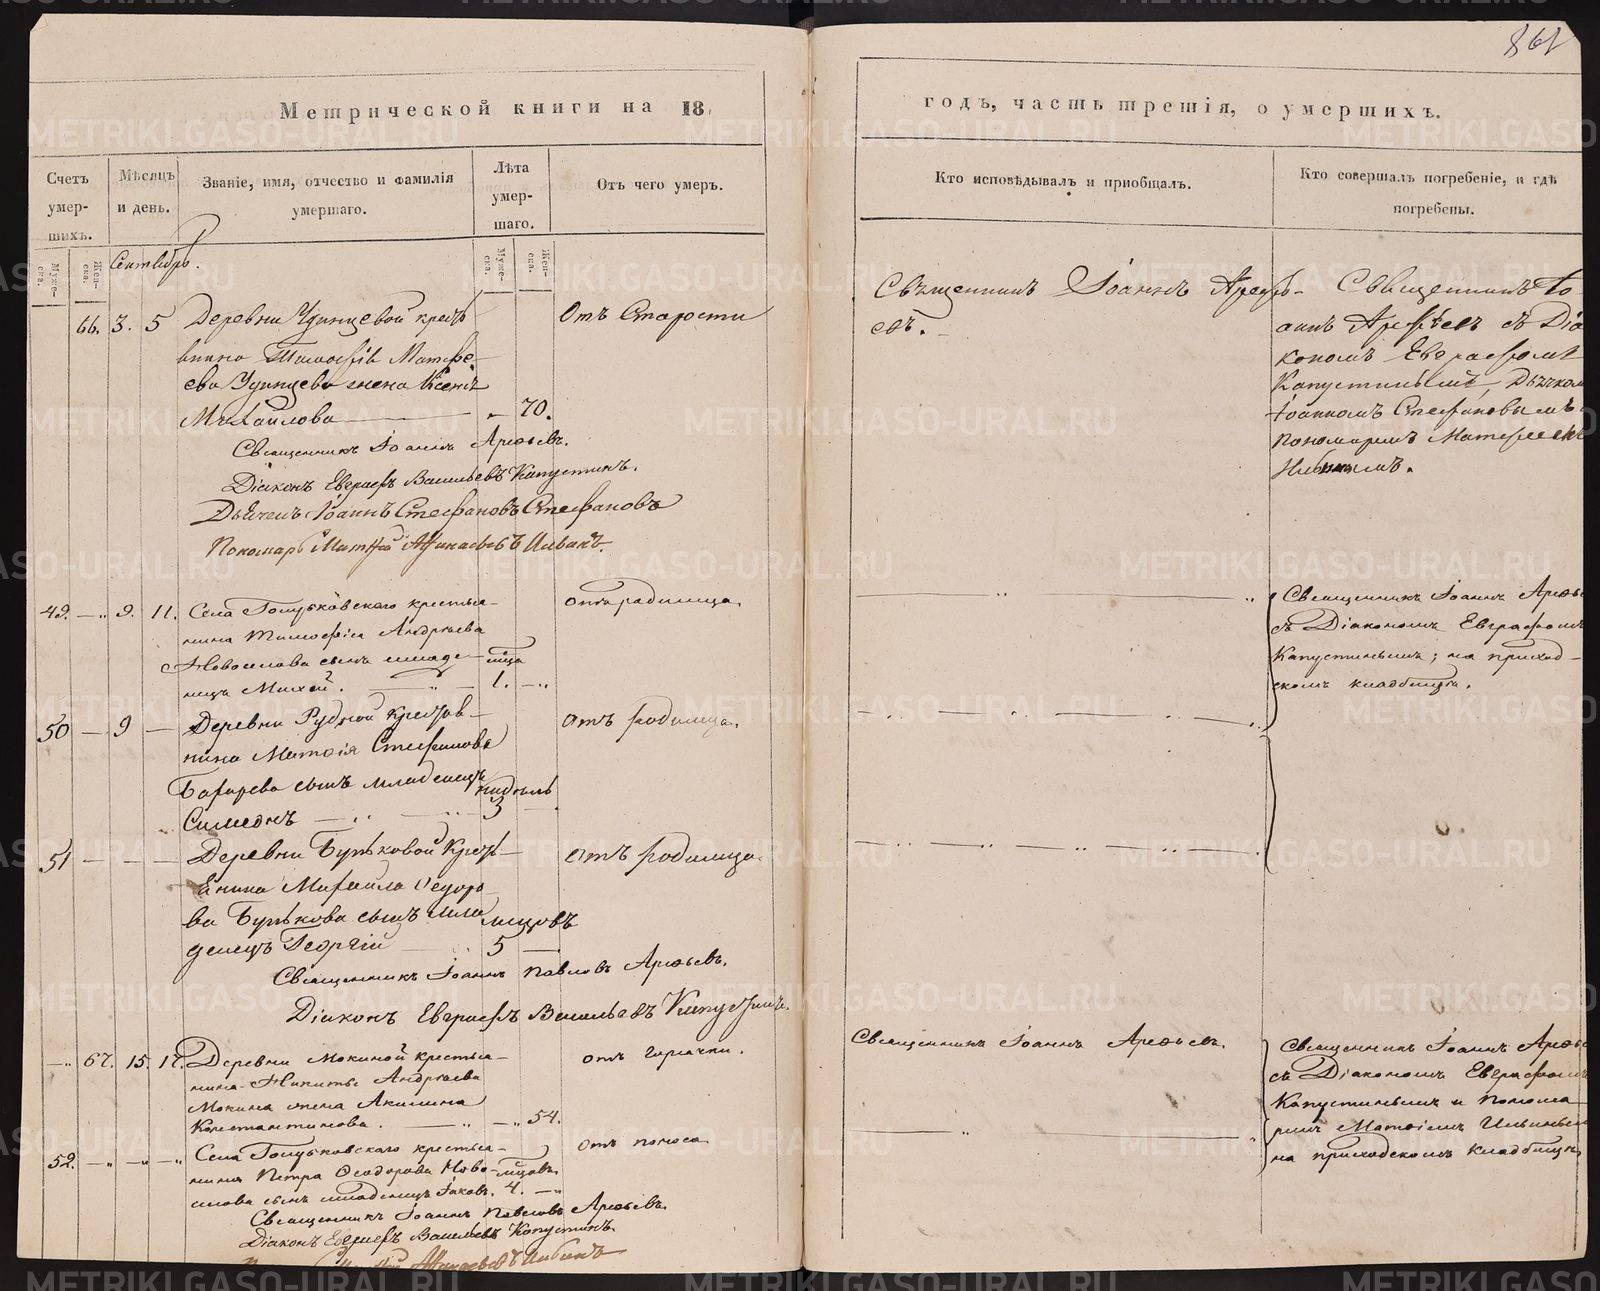 861
Метрической книги на 18
годъ, часть третія, о умершихъ.
Счетъ умер-шихъ.
Мѣсяцъ и день.
Званіе, имя, отчество и фамилія умершаго.
Лѣта умер-шаго.
Отъ чего умеръ.
Кто исповѣдывалъ и пріобщалъ.
Кто совершалъ погребеніе, и гдѣ погребены.
Муже-ска.
Жен-ска.
Сентябрь.
Муже-ска.
Жен-ска.
66. 3. 5 Деревни Удинцевой кресть
янина Тимофія Матфе-
ева Удинцева жена Ксенія
Михайлова — 70.
Отъ Старости
Священникъ Іоаннъ Арефь-
евъ.
Священникъ Іо-
аннъ Арефьевъ съ Діа
кономъ Евграфомъ
Капустинымъ, Дьячком
Іоанномъ Стефановымъ
Пономаремъ Матфеемъ
Священникъ Іоаннъ Арефьевъ.
Діаконъ Евграфъ Васильевъ Капустинъ.
Дьячекъ Іоаннъ Стефановъ Стефановъ
Пономарь Матфей
49. — 9. 11. Села Голубковскаго крестья-
нина Тимофія Андреева
Новоселова сынъ младе-
нецъ
1. —
Отъ родимца.
Священникъ Іоаннъ Арефье
съ Діакономъ Евграфомъ
Капустинымъ; на приход-
скомъ кладбищѣ.
50 — 9 — Деревни Рудной Крестья
нина Матѳія Стефанова
сынъ младенецъ
Симеонъ
недѣль
3 —
Отъ родимца.
51 — — — Деревни Бучковой Кресть-
янина Михаила Ѳедоро-
ва Бучкова сынъ мла
денецъ Георгій
мѣсяцовъ
5 —
Отъ родимца.
Священникъ Іоаннъ Павловъ Арефьевъ.
Діаконъ Евграфъ Васильевъ Капустинъ.
— 67. 15. 17. Деревни Мокиной крестья-
нина Никиты Андреева
Мокина жена Акилина
Константинова. — 54.
отъ горячки.
Священникъ Іоаннъ Арефьевъ.
Священникъ Іоаннъ Арефье
съ Діакономъ Евграфомъ
Капустинымъ и Понома
ремъ Матѳіемъ
на приходскомъ кладбищѣ.
52. — — — Села Голубковскаго крестья-
нина Петра Ѳеодорова Ново-
селова сынъ младенецъ Іаковъ. 4. —
Отъ поноса
Священникъ Іоаннъ Павловъ Арефьевъ.
Діаконъ Евграфъ Васильевъ Капустинъ.
METRIKI.GASO-URAL.RU